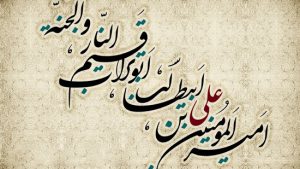 امیرالمؤمنین
علی بن
ابیطالب
ابوتراب
قسیم
النار والجنة